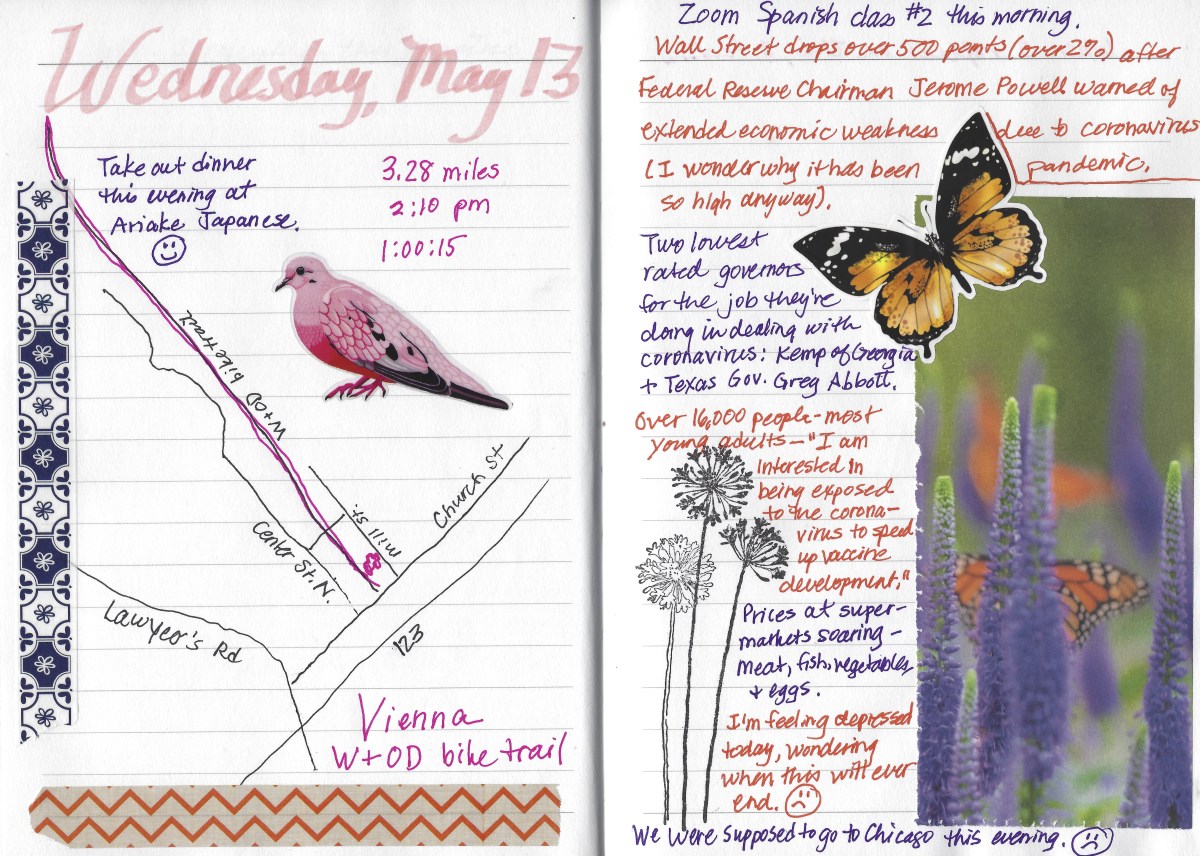 Wednesday, May 13
Take out dinner
this evening at
Ariake Japanese.
3.28 miles
2:10 pm
1:00:15
W+OD bike trail
Mill St.
Church St
Center St. N.
Lawyer's Rd
123
Vienna
W+OD bike trail
Zoom Spanish class #2 this morning.
Wall Street drops over 500 points (over 2%) after
Federal Reserve Chairman Jerome Powell warned of
extended economic weakness due to coronavirus
pandemic.
(I wonder why it has been
so high anyway).
Two lowest
rated governors
for the job they're
doing in dealing with
coronavirus: Kemp of Georgia
+ Texas Gov. Greg Abbott.
Over 16,000 people - most
young adults - "I am
interested in
being exposed
to the corona-
virus to speed
up vaccine
development."
Prices at super-
markets soaring -
meat, fish, vegetables,
+ eggs.
I'm feeling depressed
today, wondering
when this will ever
end.
We were supposed to go to Chicago this evening.